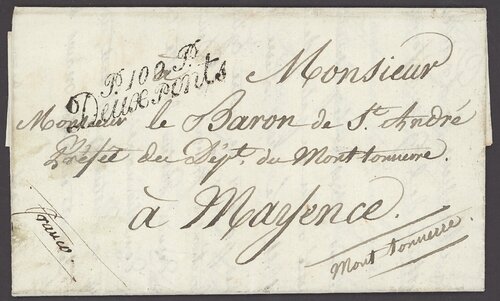 P. 100 P.
Deux-ponts
à Monsieur
Monsieur le Baron de St. André
Préfet du Dépt. du Mont tonnerre.
à Mayence.
franco.
Mont tonnerre.